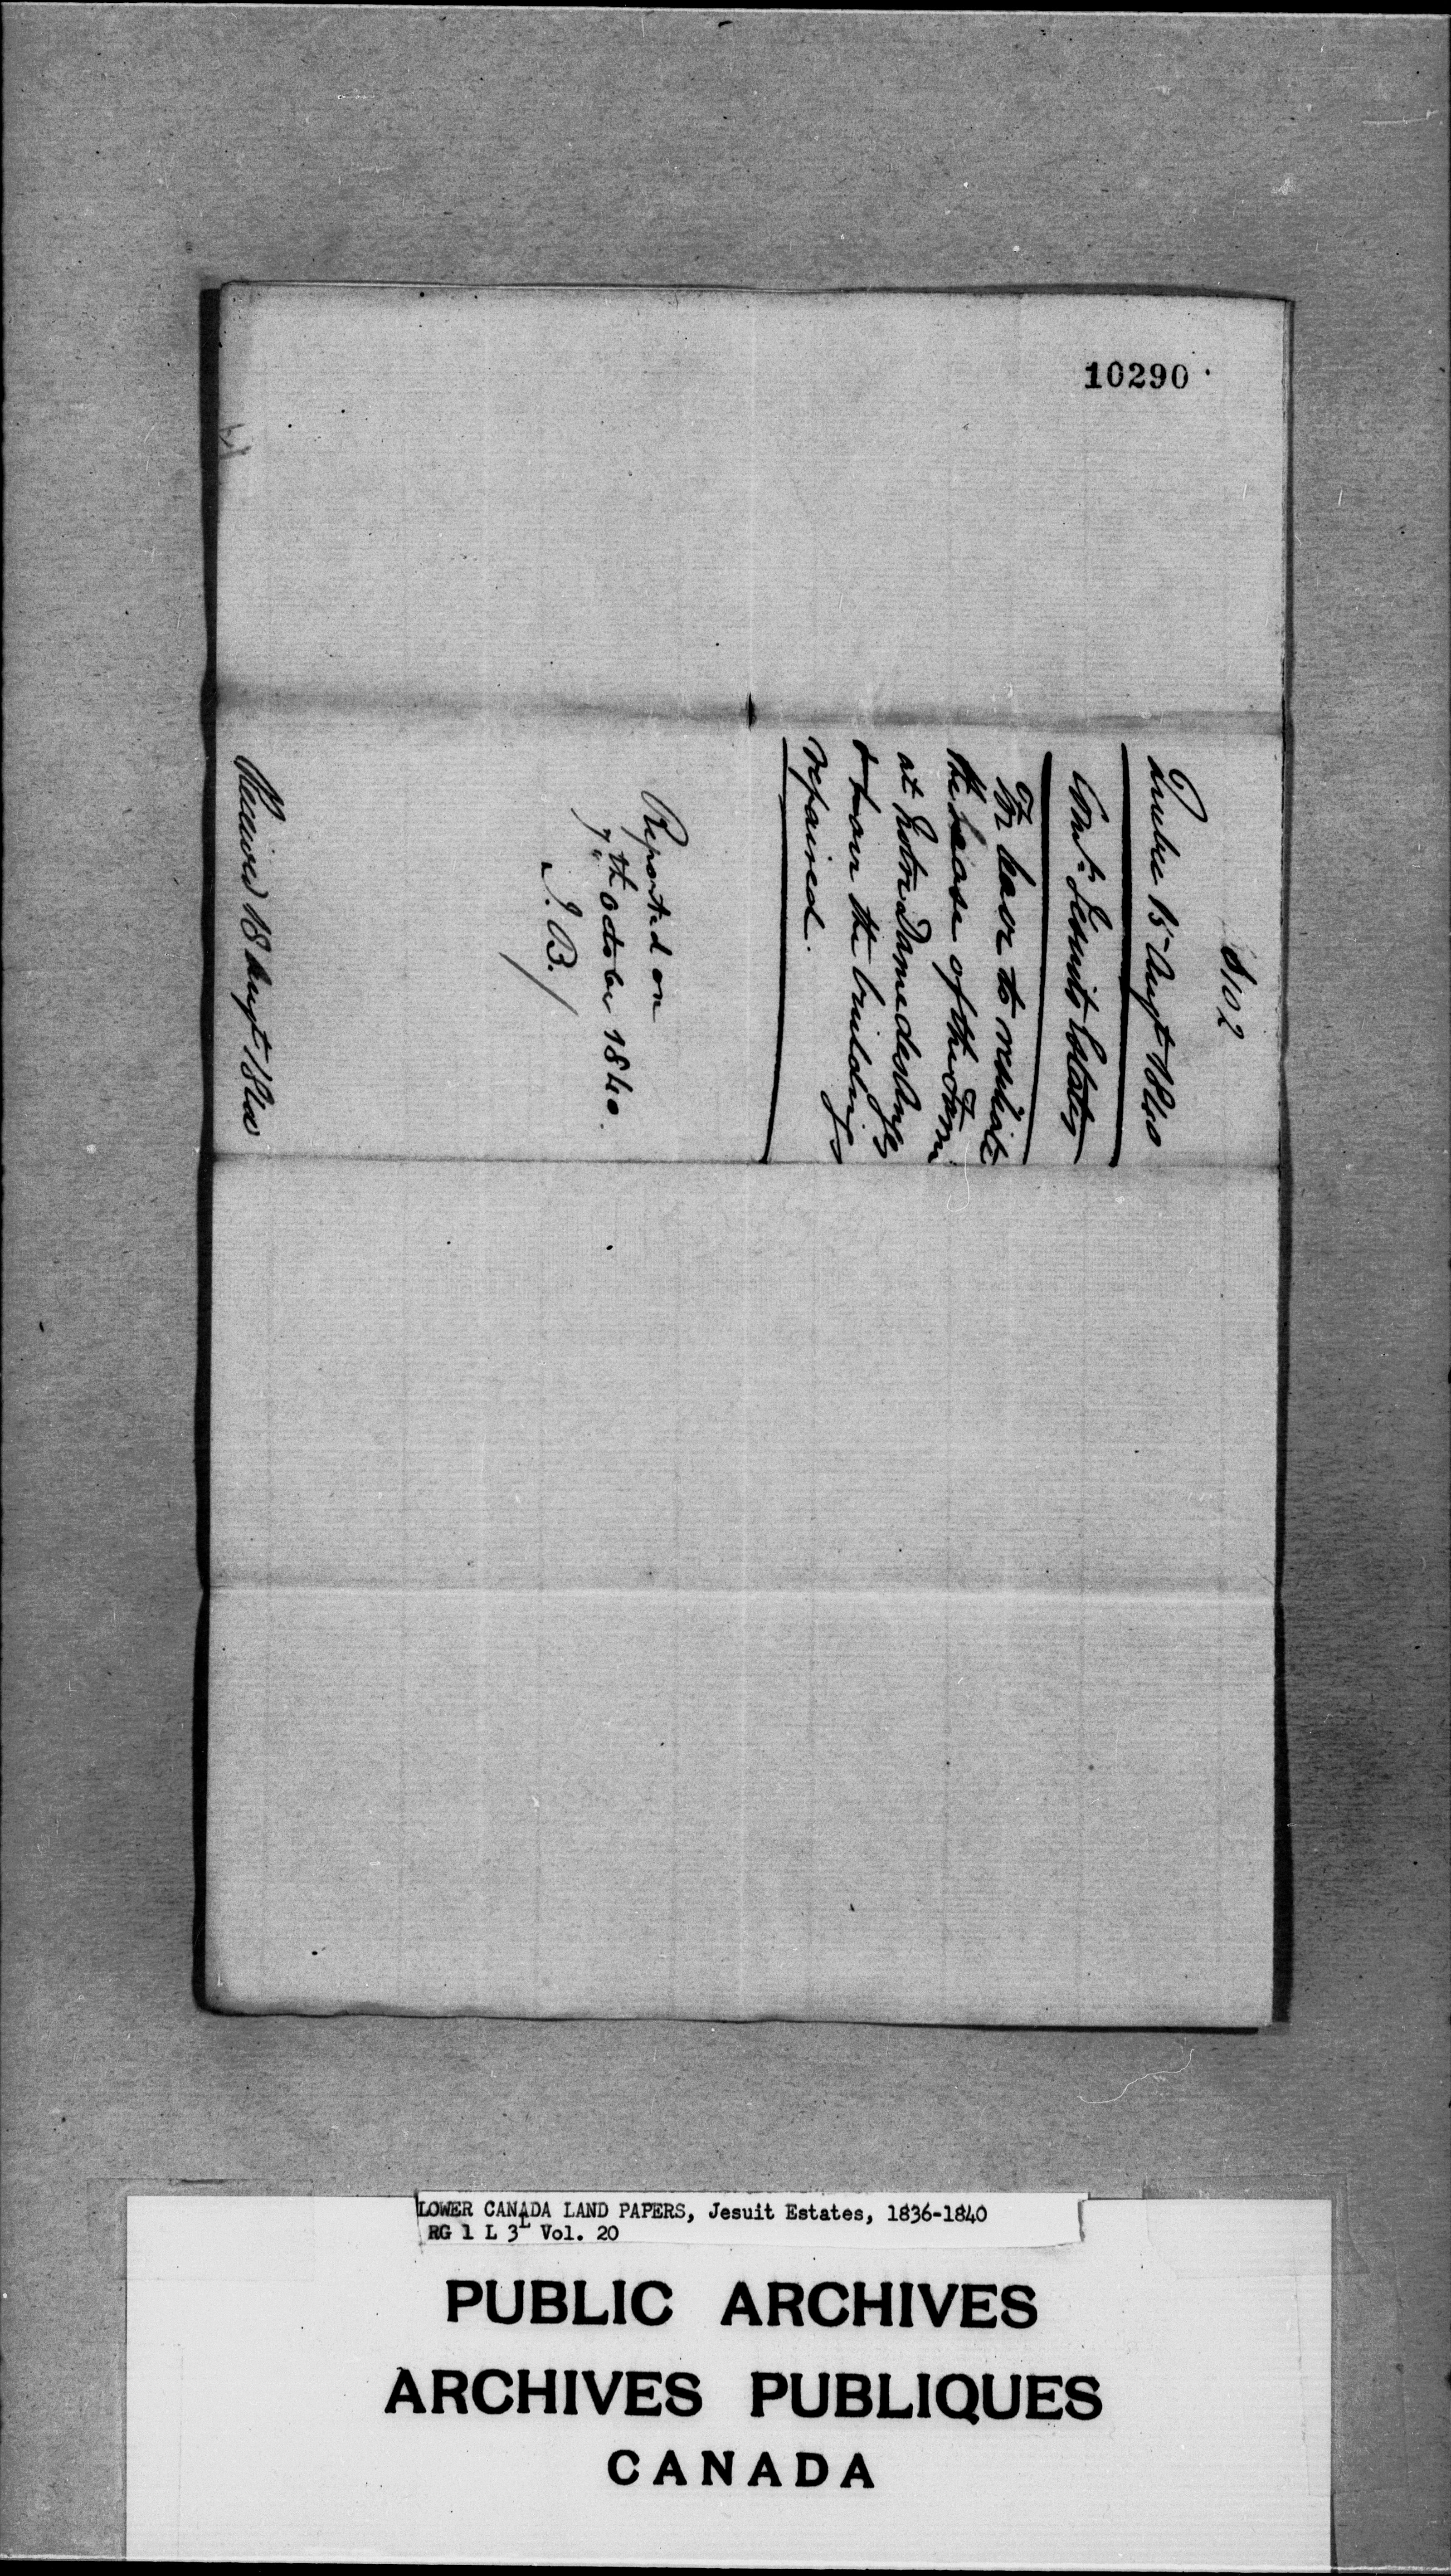 10290
8102
Quebec 15 Augt 1840
Comr. Jesuits Estates
For leave to resiliate
the lease of the Farm
at Notre Dame des Anges
& have the buildings
repaired.
Reported on
7th October 1840.
J. B.
Received 18 Augt 1840
LOWER CANADA LAND PAPERS, Jesuit Estates, 1836-1840
RG 1 L 3L Vol. 20
PUBLIC ARCHIVES
ARCHIVES PUBLIQUES
CANADA